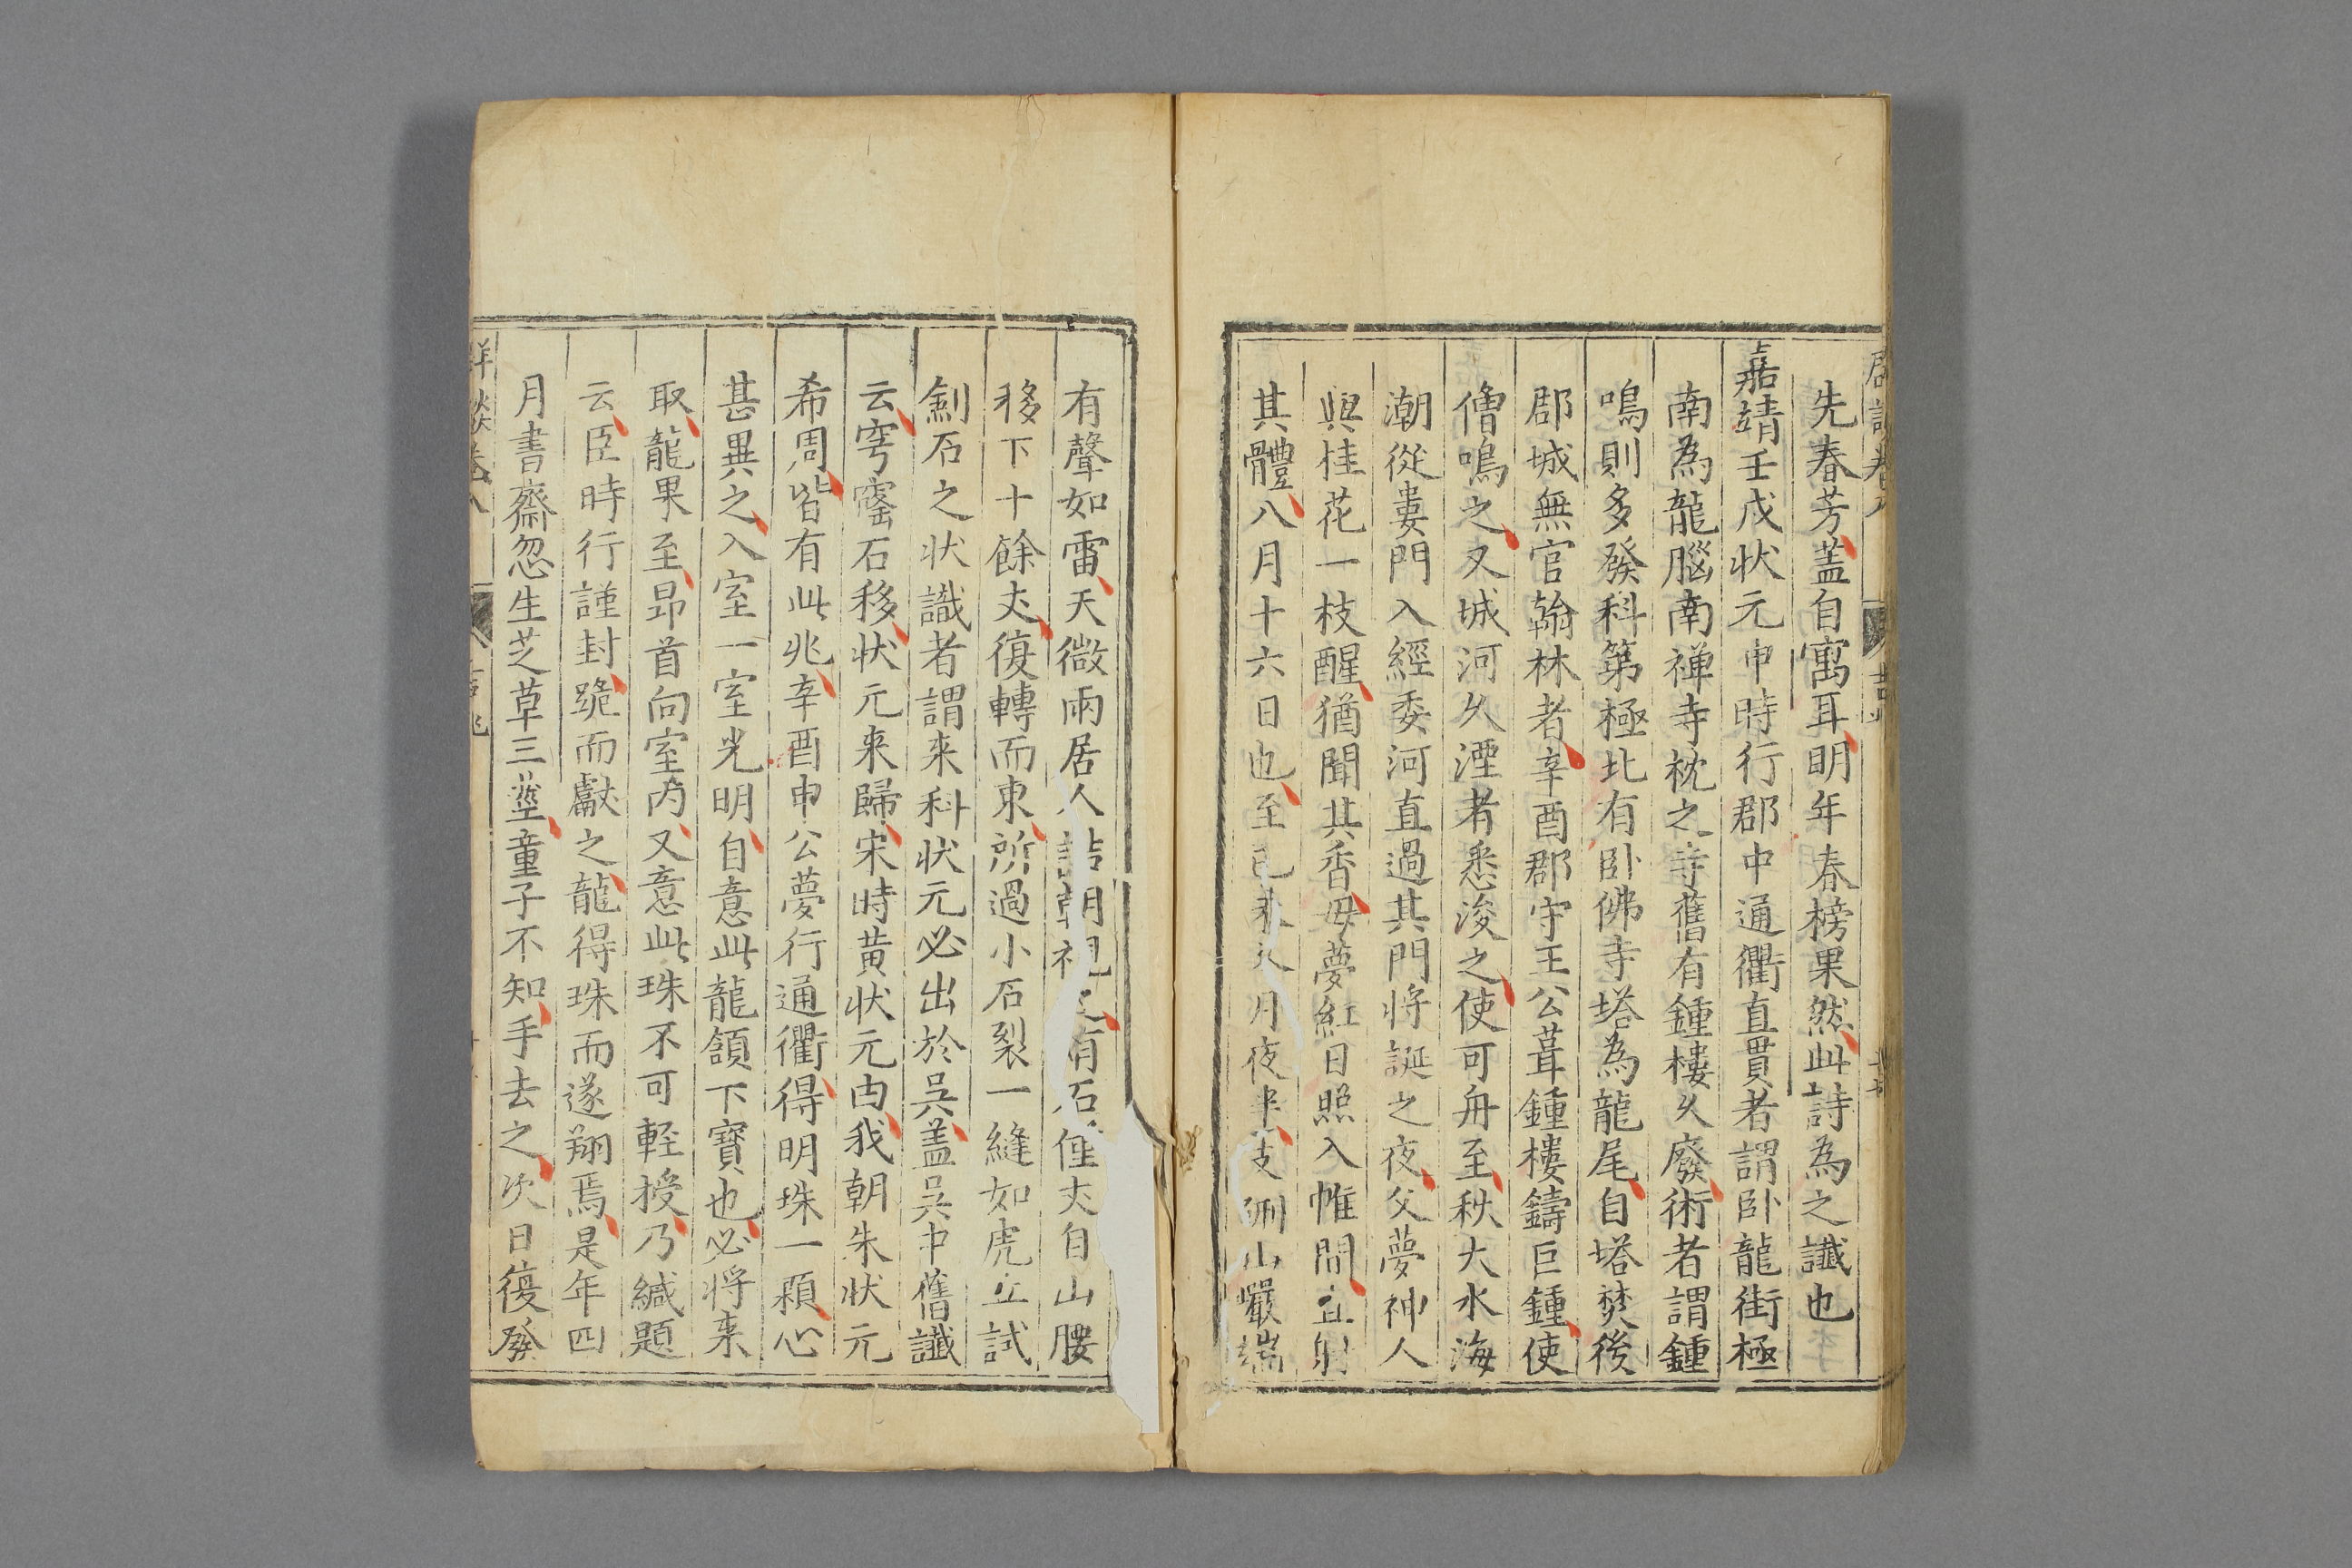 先春芳蓋自寓耳明年春榜果然此詩為之讖也
嘉靖壬戌状元申時行郡中通衢直貫者謂卧龍街極
南為龍腦南禅寺枕之寺舊有鍾樓久廢術者謂鍾
鳴則多發科第極北有卧佛寺塔為龍尾自塔焚後
郡城無官翰林者辛酉郡守王公葺鍾樓鑄巨鍾使
僧鳴之又城河久湮者悉浚之使可舟至秋大水海
潮從婁門入經委河直過其門将誕之夜父夢神人
與桂花一枝醒猶聞其香母夢紅日照入帷間直射
其體八月十六日也至己未月夜半支硎山巖端
有聲如雷天微雨居人詰朝視之有石僅丈自山腰
移下十餘丈復轉而東所過小石裂一縫如虎丘試
劍石之状識者謂来科状元必出於吳蓋吳中舊讖
云穹窿石移状元来歸宋時黄状元由我朝朱状元
希周皆有此兆辛酉申公夢行通衢得明珠一顆心
甚異之入室一室光明自意此龍頷下寳也必将来
取龍果至昂首向室内又意此珠不可輕授乃緘題
云臣時行謹封跪而獻之龍得珠而遂翔焉是年四
月書齋忽生芝草三莖童子不知手去之次日復發